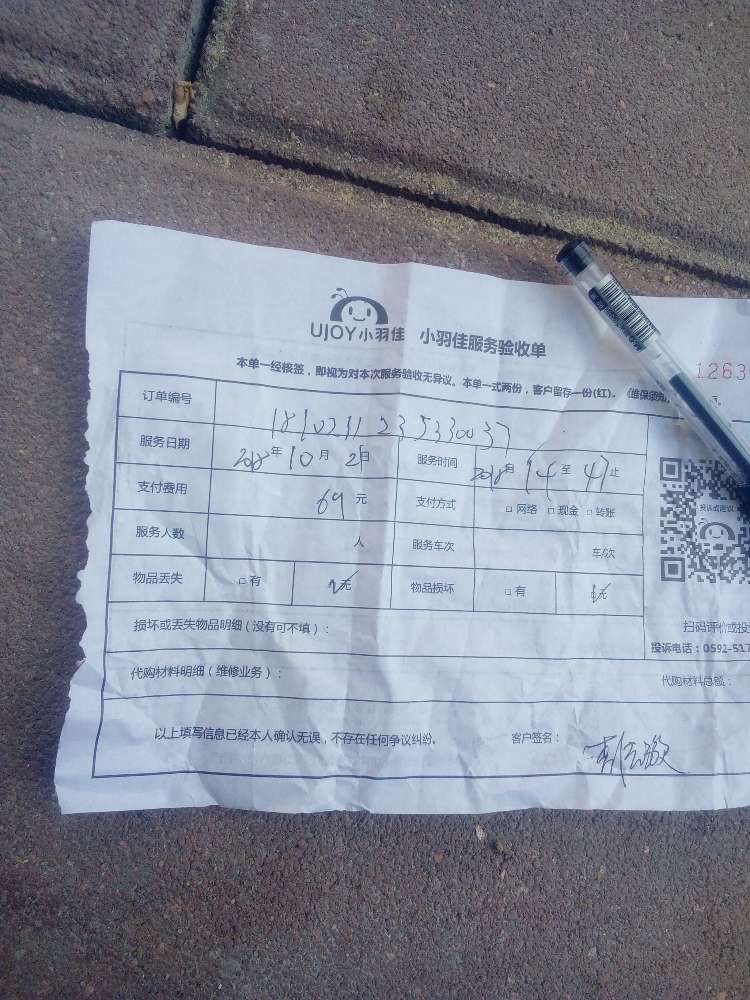 UJOY小羽佳 小羽佳服务验收单
本单一经核签，即视为对本次服务验收无异议。本单一式两份，客户留存一份(红)。（维保须知，
1263
订单编号
服务日期 2018年10月2日 服务时间 14至 止
支付费用 69元 支付方式 □网络 □现金 □转账
服务人数 人 服务车次 车/次
物品丢失 □有 无 物品损坏 □有 无
投诉或建议
扫码评价或投
投诉电话：0592-517
损坏或丢失物品明细（没有可不填）：
代购材料明细（维修业务）： 代购材料总额：
以上填写信息已经本人确认无误，不存在任何争议纠纷。 客户签名：